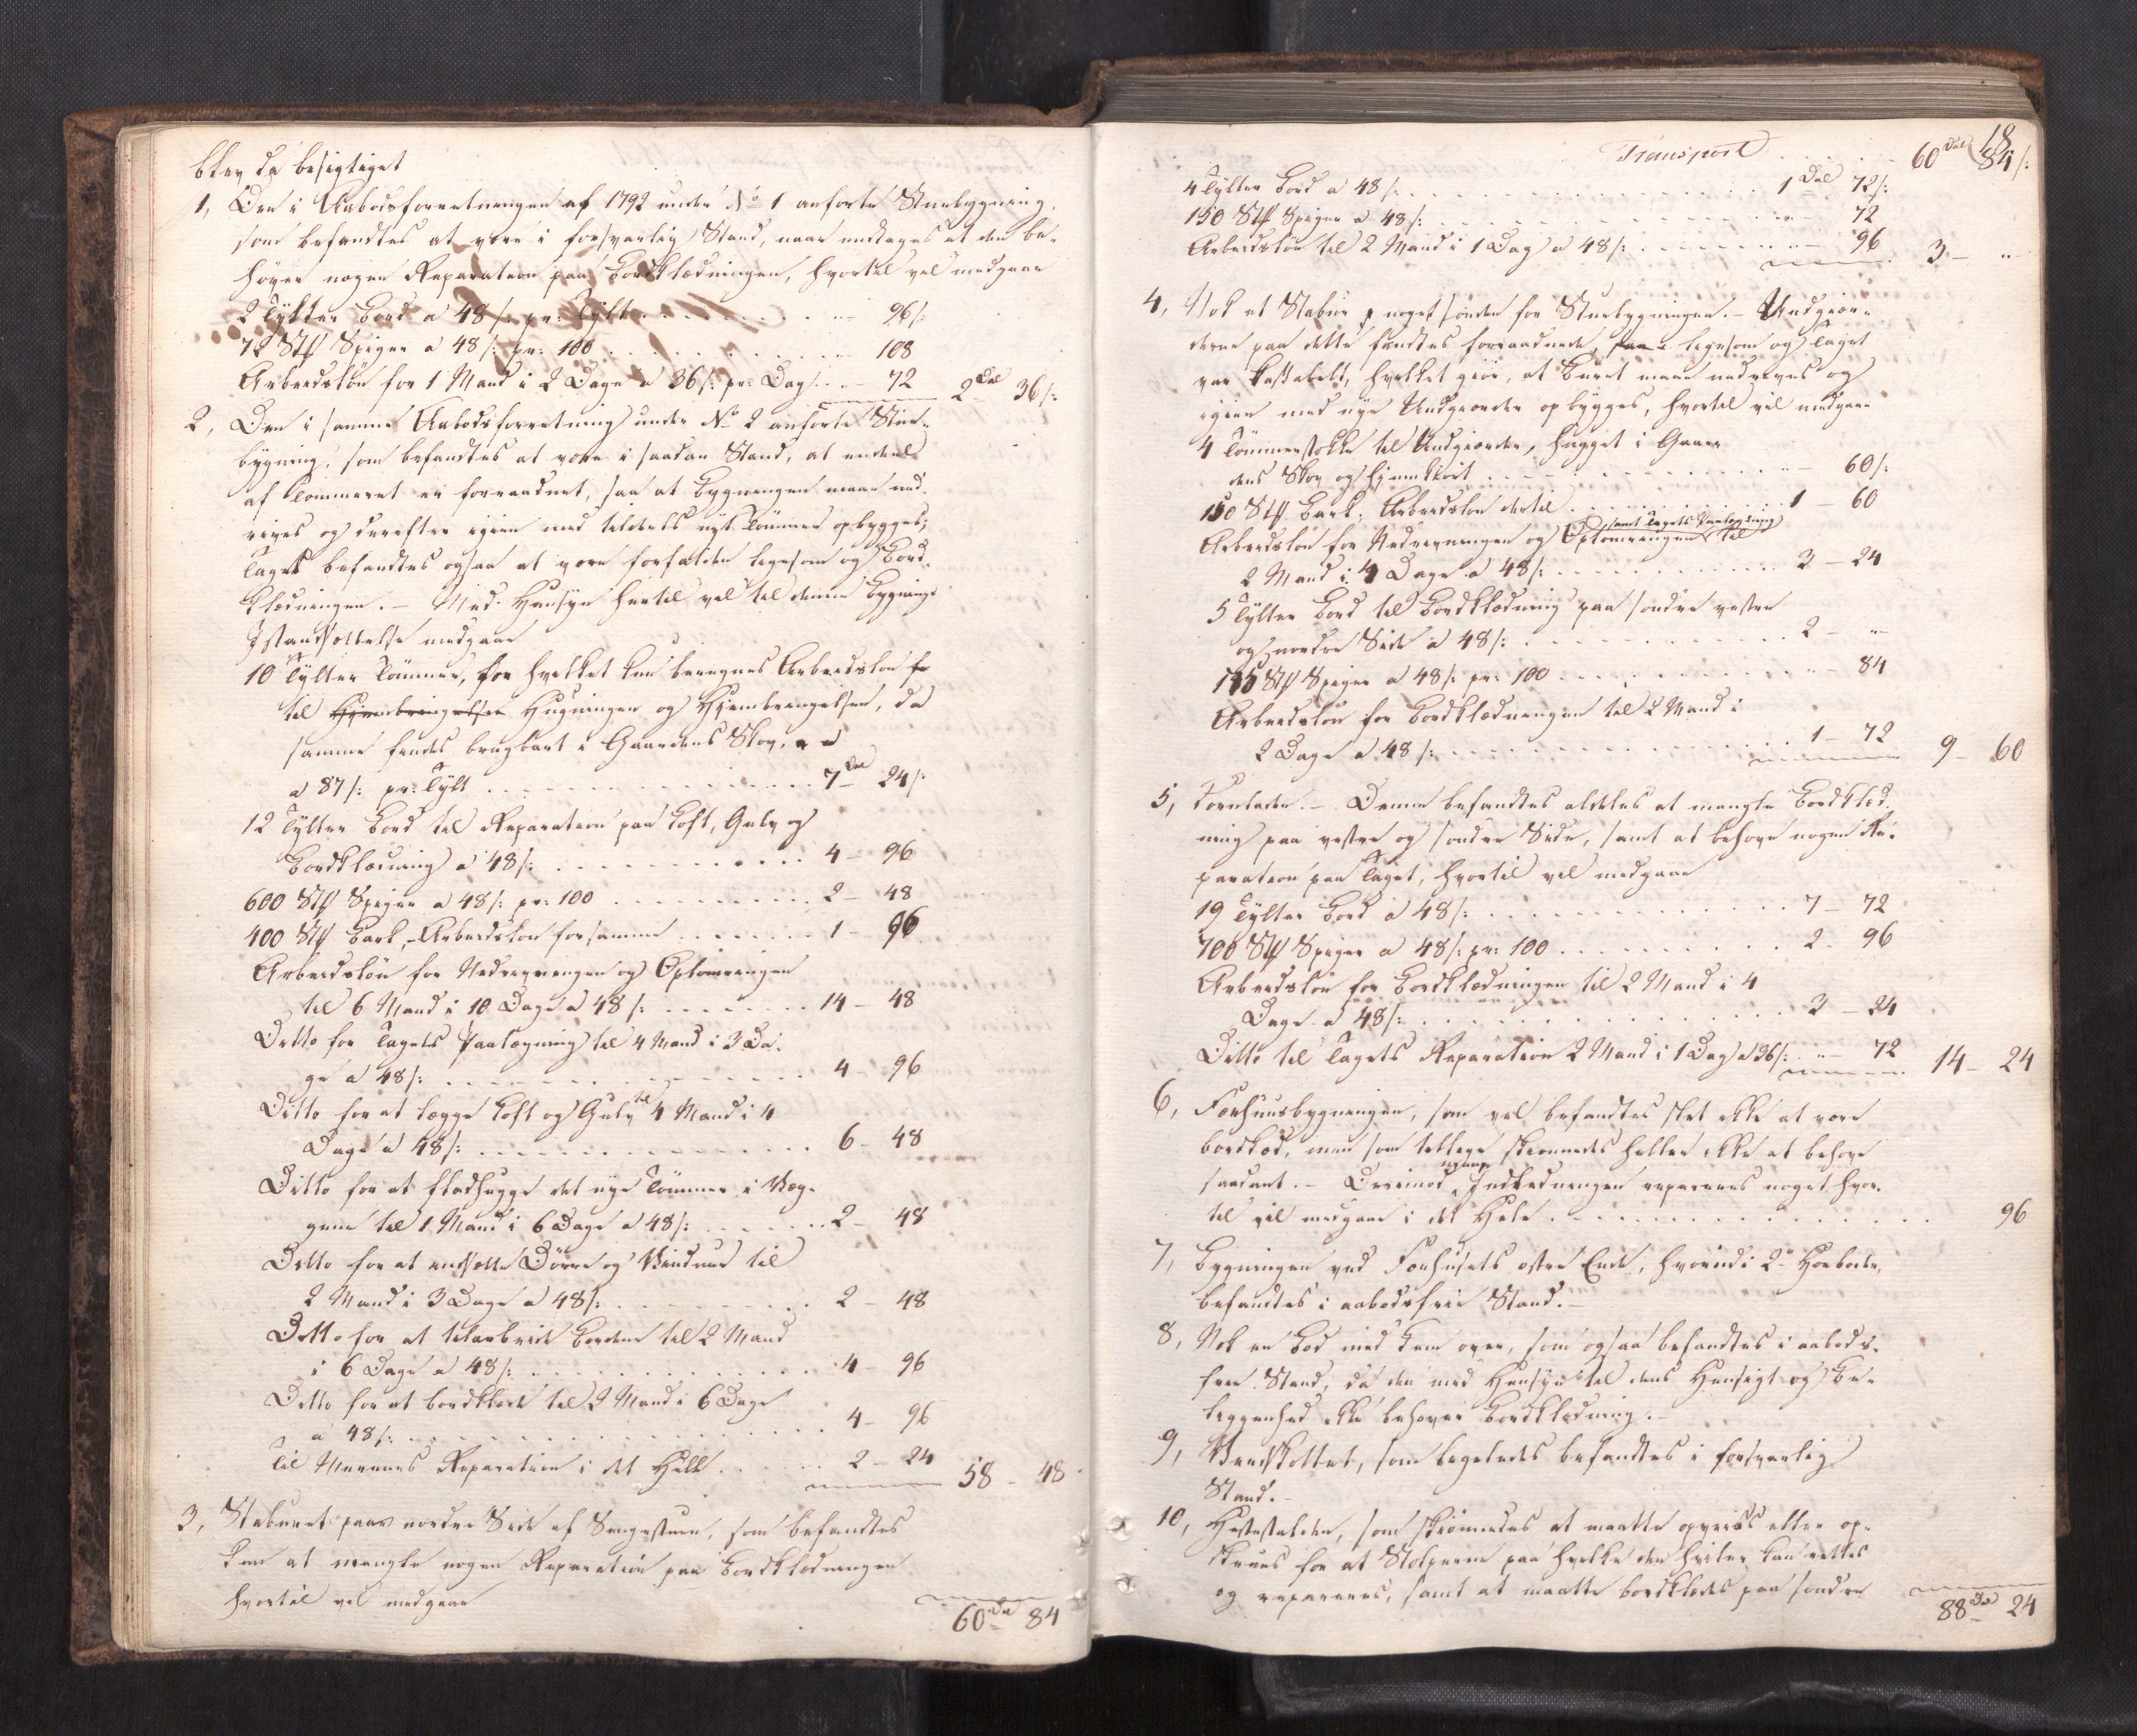 blev da besigtiget
1, Den i Aabodsforretningen af 1792 under No 1 anførte Stuebygning,
som befandtes at være i forsvarlig Stand, naar undtages at den be-
høver nogen Reparation paa Bordklædningen, hvortil vil medgaae
2 Tylter Bord a 48 /: pr: Tylt . . . " - 96 /:
72 Stk Spiger a 48 /: pr: 100 . . . " - 108
Arbeidsløn for 1 Mand i 2 Dage a 36 /: pr: Dag . . - 72 2 Dal 36 /:
2, Den i samme Aabodsforretning under No 2 anførte Stue-
bygning, som befandtes at være i saadan Stand, at endeel
af Tømmeret er forraadnet, saa at Bygningen maae ned-
rives og derefter igien med tildeels nyt Tømmer opbygges;
Taget befandtes ogsaa at være forfalden ligesom og Bord-
klædningen. - Med Hensyn hertil vil til denne Bygnings
Istandsættelse medgaae
10 Tylter Tømmer, for hvilket kun beregnes Arbeidsløn for
til Hjembringelsen Hugningen og Hjembringelsen, da
samme findes brugbart i Gaardens Skov, a
a 87 /: pr: Tylt . . . 7 Dal 24 /:
12 Tylter Bord til Reparation paa Loft, Gulv og
Bordklædning a 48 /: . . . 4 - 96
600 Stk Spiger a 48 /: pr: 100 . . . 2 - 48
400 Stk Bark, Arbeidsløn for samme . . . 1 - 96
Arbeidsløn for Nedrivningen og Optømringen
til 6 Mand i 10 Dage a 48 /: . . . 14 - 48
Ditto for Tagets Paalægning til 4 Mand i 3 Da-
ge a 48 /: . . . 4 - 96
Ditto for at lægge Loft og Gulv til 4 Mand i 4
Dage a 48 /: . . . 6 - 48
Ditto for at fladhugge det nye Tømmer i Væg-
gene til 1 Mand i 6 Dage a 48 /: . . . 2 - 48
Ditto for at indsætte Dørre og Vinduer til
2 Mand i 3 Dage a 48 /: . . . 2 - 48
Ditto for at tilarbeide Bordene til 2 Mand
i 6 Dage a 48 /: . . . 4 - 96
Ditto for at bordklæde til 2 Mand i 6 Dage
a 48 /: . . . 4 - 96
Til Murenes Reparation i det Hele . . . 2 - 24 58 - 48
3, Stabuuret paa nordre Side af Sengestuen, som befandtes
kun at mangle nogen Reparation paa Bordklædningen
hvortil vil medgaae
60 Dal 84
18
Transport . . . 60 Dal 84 /:
4 Tylter Bord a 48 /: . . . 1 Dal 72 /:
150 Stk Spiger a 48 /: . . . " - 72
Arbeidsløn til 2 Mand i 1 Dag a 48 /: . . . " - 96 3 - "
4, Nok et Stabur noget sønden for Stuebygningen. - Undgiær-
derne paa dette fandtes forraadnede, ligesom og Taget
var kassabelt, hvilket giør, at Buret maae nedrives og
igien med nye Undgiærder opbygges, hvortil vil medgaae
4 Tømmerstokke til Undgiærder, hugget i Gaar-
dens Skov og hjemkiørt . . . " - 60 /:
150 Stk Bark, Arbeidsløn dertil . . . 1 - 60
samt Tagets Paalægning
Arbeidsløn for Nedrivningen og Optømringen til
2 Mand i 4 Dage a 48 /: . . . 3 - 24
5 Tylter Bord til Bordklædning paa søndre vestre
og nordre Side a 48 /: . . . 2 - "
175 Stk Spiger a 48 /: pr: 100 . . . " - 84
Arbeidsløn for Bordklædningen til 2 Mand i
2 Dage a 48 /: . . . 1 - 72 9 - 60
5, Kornladen. - Denne befandtes aldeles at mangle Bordklæd-
ning paa vestre og søndre Side, samt at behøve nogen Re-
paration paa Taget, hvortil vil medgaae
19 Tylter Bord a 48 /: . . . 7 - 72
700 Stk Spiger a 48 /: pr: 100 . . . 2 - 96
Arbeidsløn for Bordklædningen til 2 Mand i 4
Dage a 48 /: . . . 3 - 24
Ditto til Tagets Reparation 2 Mand i 1 Dag a 36 /: . . " - 72 14 - 24
6, Fæhuusbygningen, som vel befandtes slet ikke at være
bordklæd, men som tillige skiønnedes heller ikke at behøve
saadant. - Derimod maae Indklædningen repareres noget hvor-
til vil medgaae i det Hele . . . 96
7, Bygningen ved Fæehusets østre Ende, hvorudi 2de Høeboder,
befandtes i aabodsfrie Stand. -
8, Nok en Bod med Lem over, som ogsaa befandtes i aabods-
frie Stand, da den med Hensyn til dens Hensigt og Be-
liggenhed ikke behøver Bordklædning. -
9, Vedskottet, som ligeledes befandtes i forsvarlig
Stand. -
10, Hestestalden, som skiønnedes at maatte oprives eller op-
skrues for at Stolperne paa hvilke den hviler kan rettes
og repareres, samt at maatte bordklædes paa søndre
88 Dal 24